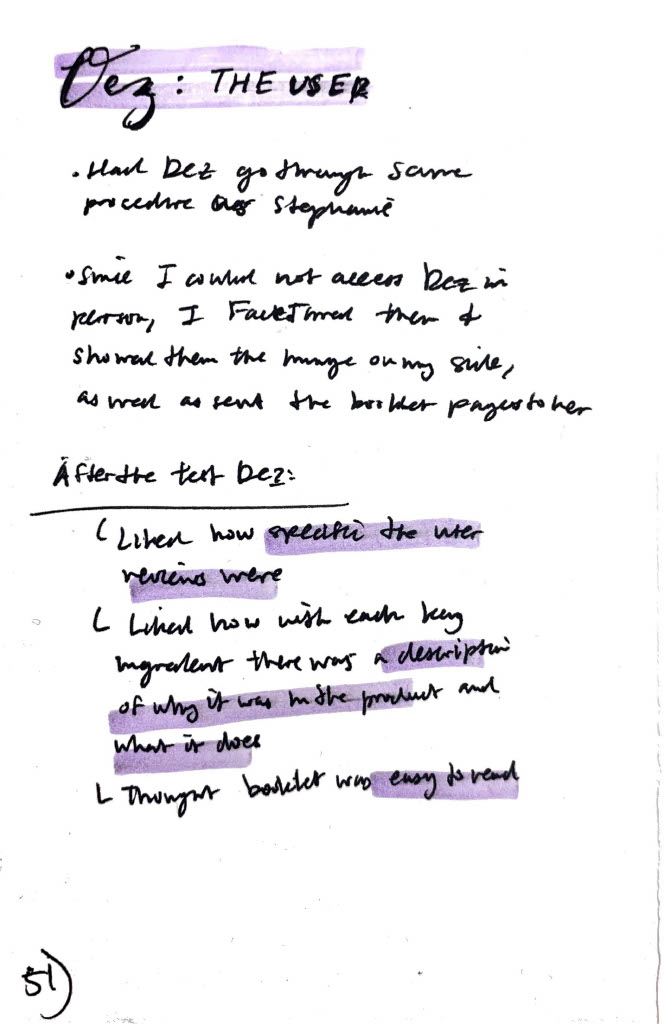 Dez: THE USER
• Had Dez go through same
procedure as Stephanie
• Since I could not access Dez in
person, I FaceTimed them &
showed them the image on my side,
as well as sent the booklet pages to her
After the test Dez:
Liked how specific the user
reviews were
Liked how with each key
ingredient there was a description
of why it was in the product and
what it does
Thought booklet was easy to read
51)